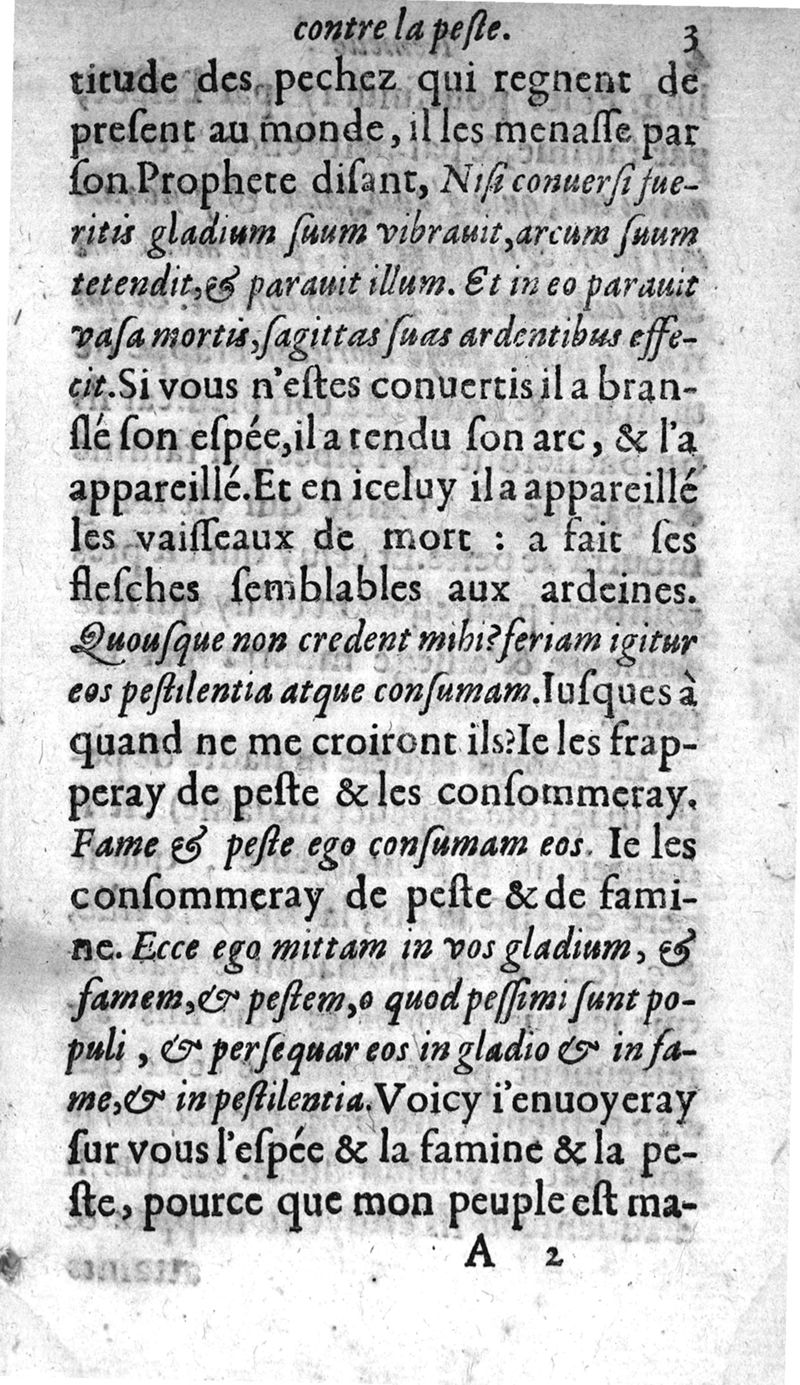 contre la peſte. 3
titude des pechez qui regnent de
preſent au monde, il les menaſſe par
ſon Prophete diſant, Niſi conuerſi fue-
ritis gladium ſuum vibrauit,arcum ſuum
tetendit,& parauit illum. Et in eo parauit
vaſa mortis,ſagittas ſuas ardentibus effe-
cit.Si vous n'eſtes conuertis il a bran-
ſlé ſon eſpée,il a tendu ſon arc, & l'a
appareillé.Et en iceluy il a appareillé
les vaiſſeaux de mort : a fait ſes
fleſches ſemblables aux ardeines.
Quouſque non credent mihi?feriam igitur
eos peſtilentia atque conſumam.Iuſques à
quand ne me croiront ils?Ie les frap-
peray de peſte & les conſommeray.
Fame & peſte ego conſumam eos. Ie les
conſommeray de peſte & de fami-
ne. Ecce ego mittam in vos gladium, &
famem,& peſtem,o quod peſſimi ſunt po-
puli , & perſequar eos in gladio & in fa-
me,& in peſtilentia.Voicy i'enuoyeray
ſur vous l'eſpée & la famine & la pe-
ſte, pource que mon peuple eſt ma-
A 2